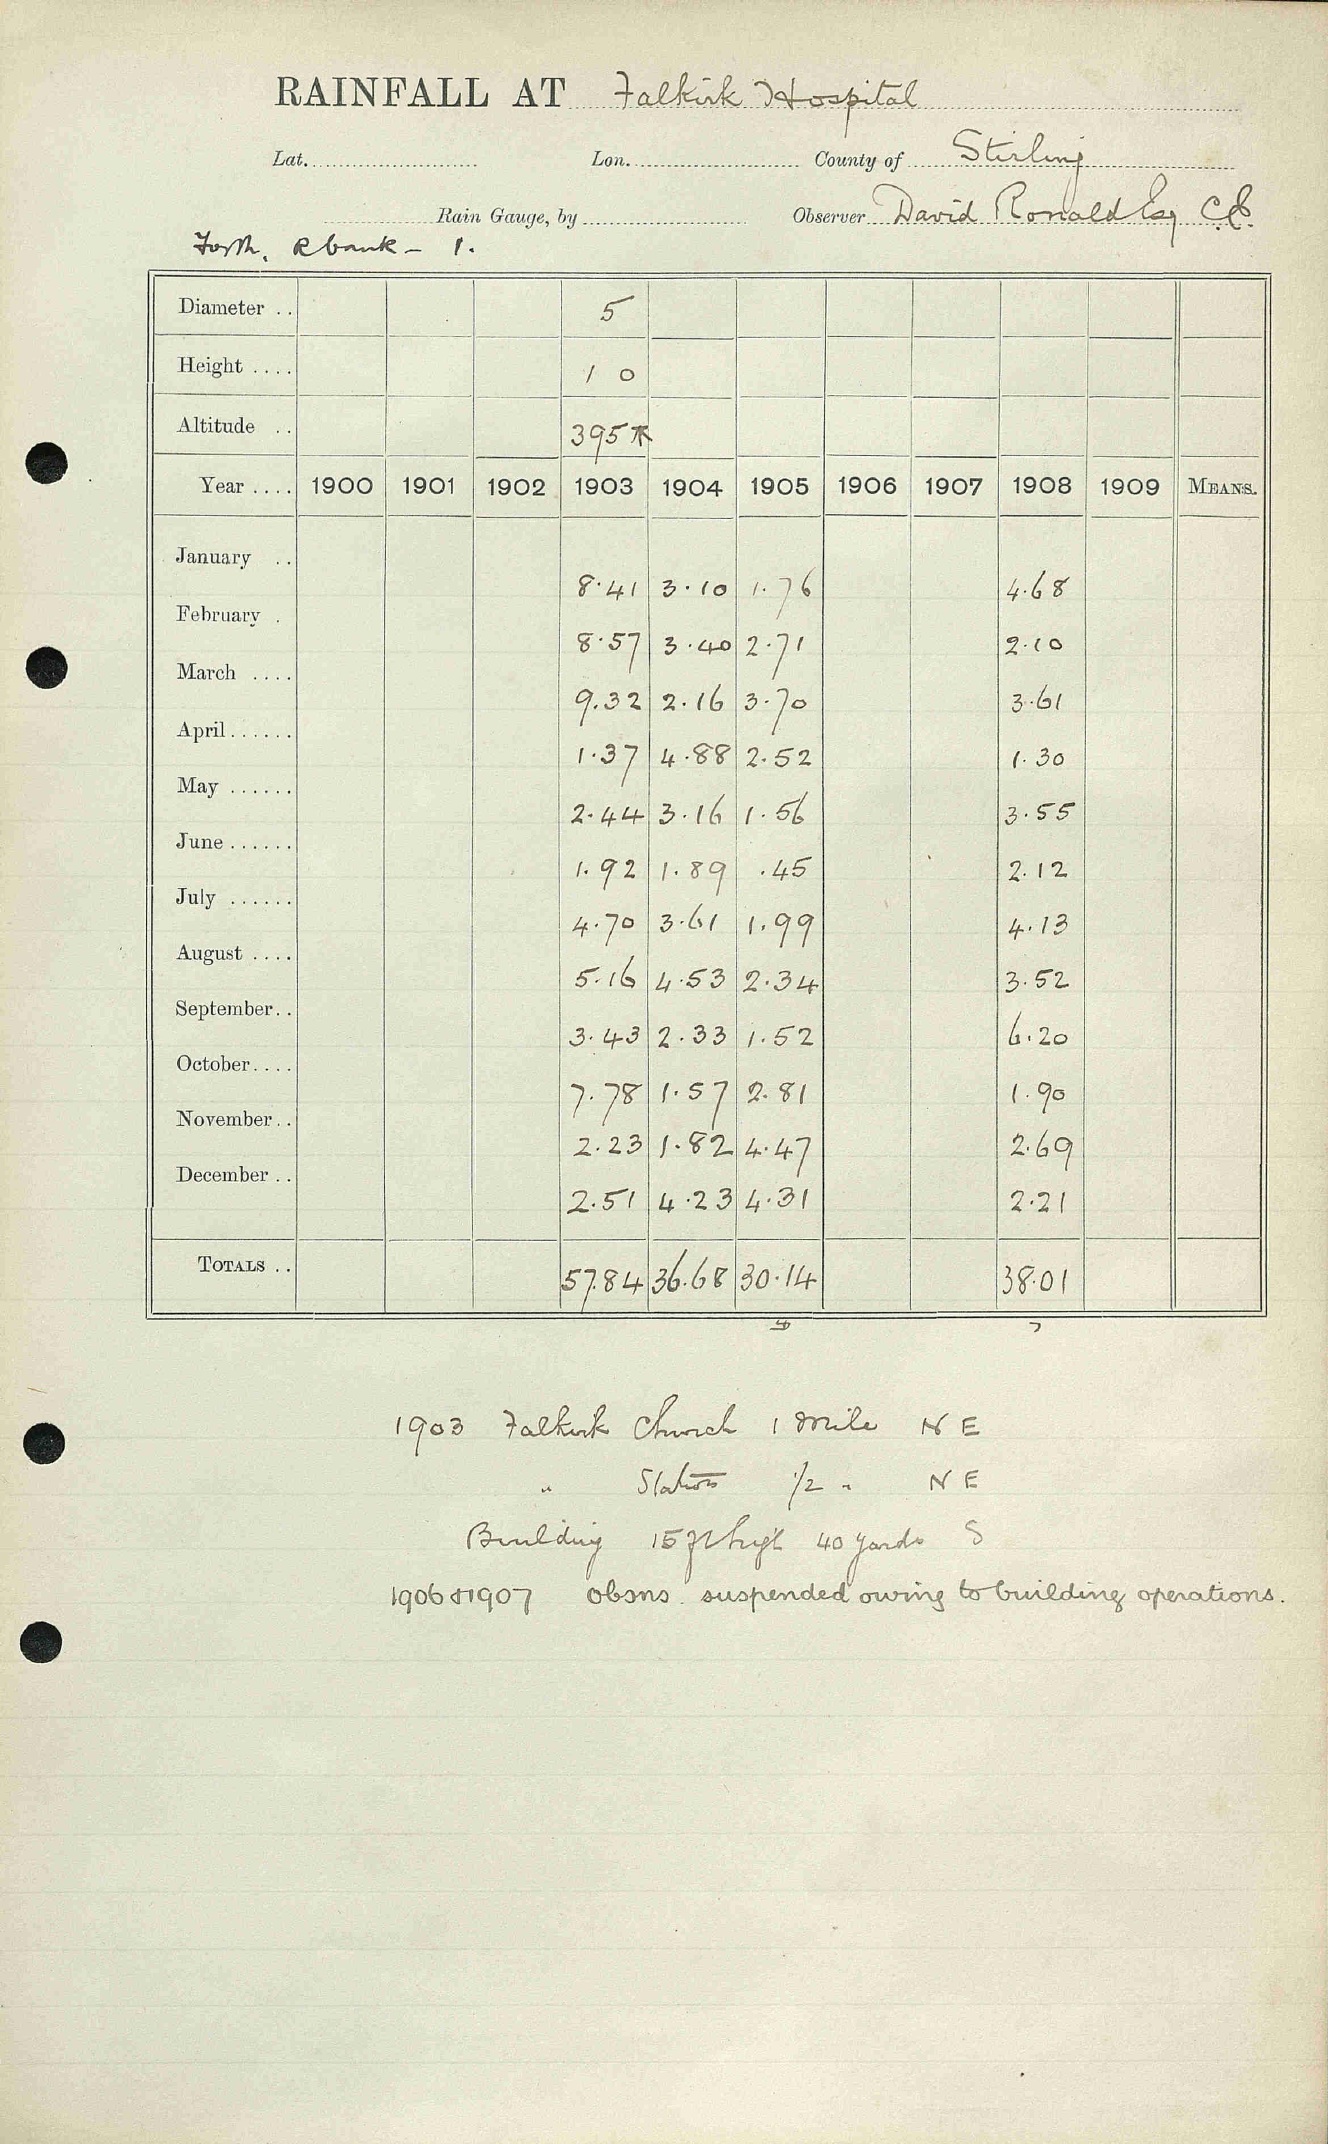 RAINFALL AT Falkirk Hospital
Lat. Lon. County of Stirling
Rain Gauge, by Observer David Ronald Esq C.E.
Forth. R bank - 1.
Diameter .. 5
Height .... 1 0
Altitude .. 395
Year .... 1900 1901 1902 1903 1904 1905 1906 1907 1908 1909 MEANS.
January .. 8.41 3.10 1.76 4.68
February . 8.57 3.40 2.71 2.10
March .... 9.32 2.16 3.70 3.61
April...... 1.37 4.88 2.52 1.30
May ...... 2.44 3.16 1.56 3.55
June ...... 1.92 1.89 .45 2.12
July ...... 4.70 3.61 1.99 4.13
August .... 5.16 4.53 2.34 3.52
September.. 3.43 2.33 1.52 6.20
October.... 7.78 1.57 2.81 1.90
November.. 2.23 1.82 4.47 2.69
December .. 2.51 4.23 4.31 2.21
TOTALS .. 57.84 36.68 30.14 38.01
1903 Falkirk Church 1 Mile N E
" Station 1/2 " N E
Building 15 ft high 40 yards S
1906 & 1907 obsns. suspended owing to building operations.